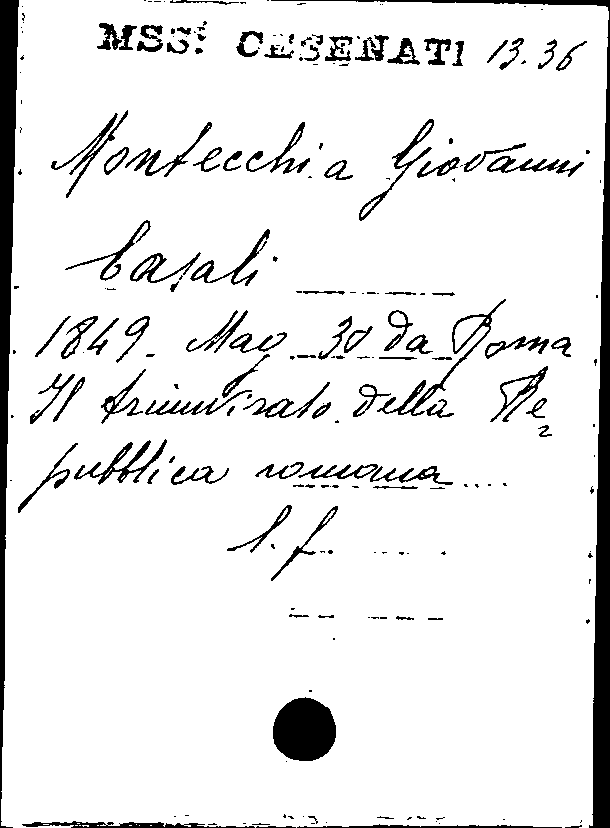 MSS. CESENATI 13.36
Montecchi a Giovanni
Casali
1849. Mag 30 da Roma
Il triumvirato della Re=
pubblica romana
l. f.